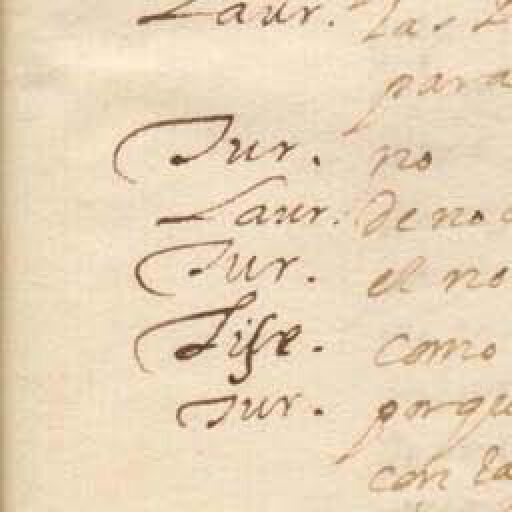 Laur. las
para
Tur. no
Laur. de no
Tur. el no
Lise. como
Tur. porqu
con la